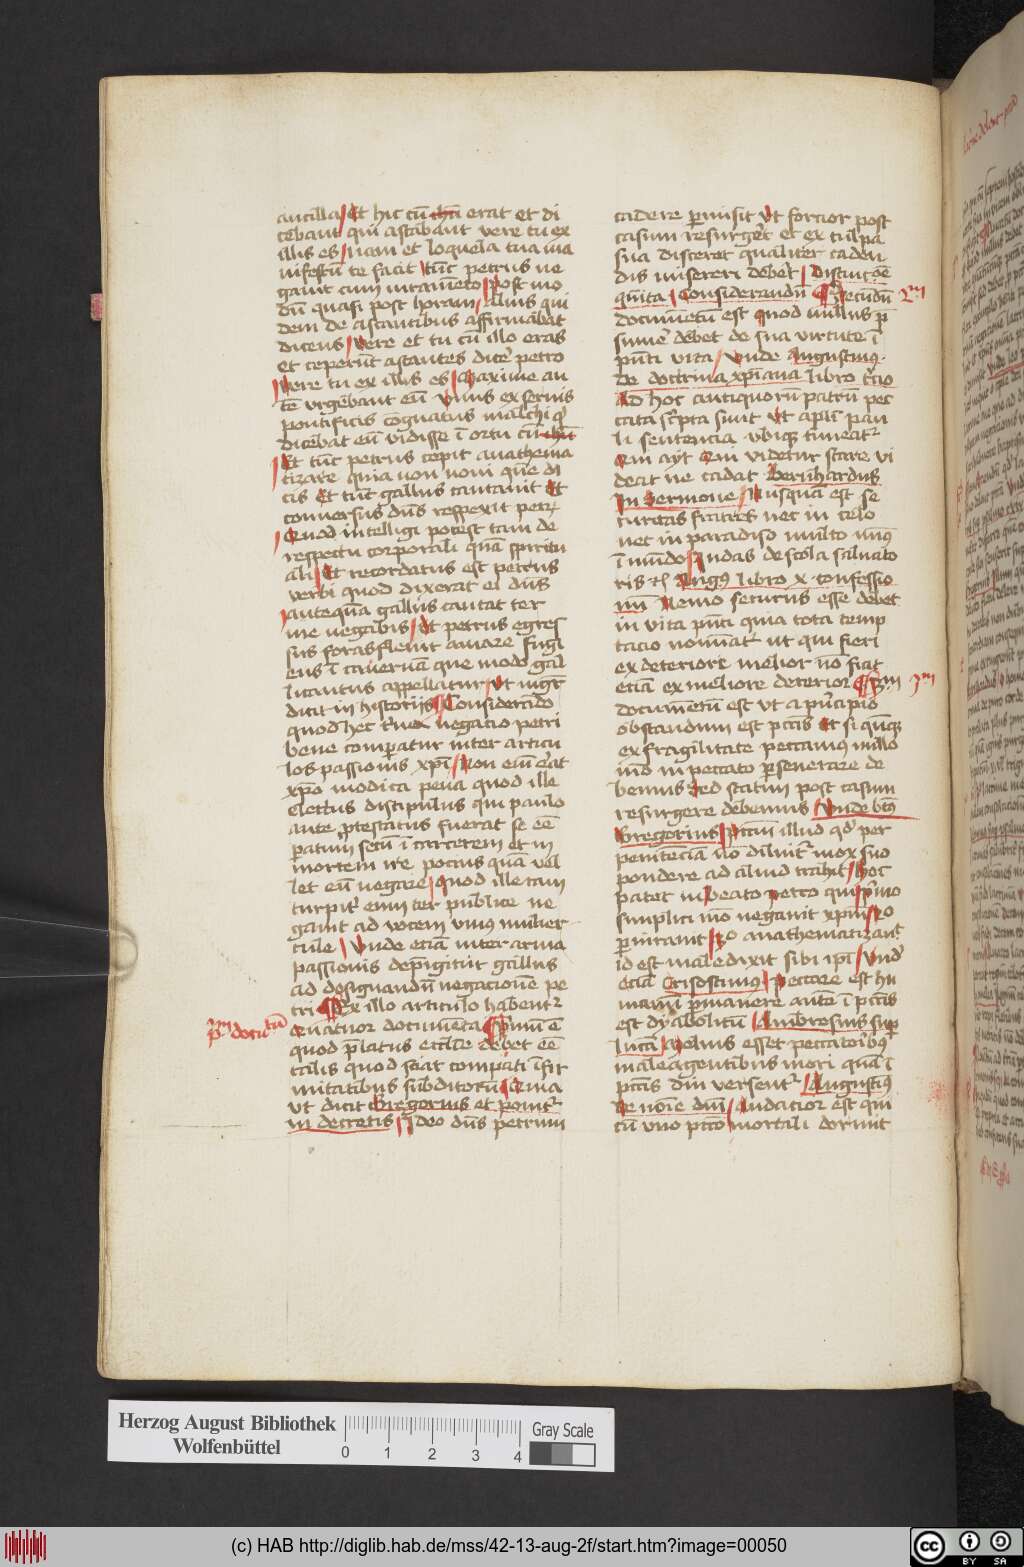 ancilla Et hic cū ihū erat et di
cebant qui astabant vere tu ex
illis es nam et loquela tua ma
nifestū te facit tūc petrus ne
gauit cum iuramēto post mo
dū quasi post horam alius qui
dem de astantibus affirmabat
dicens vere et tu cū illo eras
et ceperūt astantes dicē petro
vere tu ex illis es Maxime au
tē vrgebant eū vnus ex seruis
pontificis cognatus malchi q̄
dicebat eū vidisse ī ortu cū ihū
Et tūc petrus cepit anathema
tizare quia non noui quē di
cis Et tūc gallus cantauit Et
conuersus dūs respexit petꝝ
Quod intelligi potest tam de
respectu corporali quā spiritu
ali Et recordatus est petrus
verbi quod dixerat ei dūs
anteqūa gallus cantat ter
me negabis Et petrus egres
sus foras fleuit amare fugi
ens ī cauernā que modo gal
licantus appellatur vt mgr̄
dicit in historijs Considerādo
quod hec trinex negacio petri
bene comparatur inter articu
los passionis xp̄i Non em̄ erat
xp̄o modica pena quod ille
electus discipulus qui paulo
ante ꝓtestatus fuerat se eē
paratum secū ī carcerem et in
mortem ire pocius quā vel
let eū negare quod ille tam
turpitꝰ eum ter publice ne
gauit ad vocem vnius mulier
cule Vnde etiā inter arma
passionis depīgitur gallus
ad designandū negacionē pe
tri Ex illo articulo habentꝛ
p̄m docutū
Quatuor documēta Primū ē
quod p̄latus eccl̄ie debet eē
talis quod sciat compati īfir
mitatibus subditorū Quia
vt dicit Gregorius et ponitꝛ
in decretis Ideo dūs petrum
cadere pmisit vt forcior post
casum resurgēt et ex culpa
sua disceret qualiter caden
dis misereri debet Distinctōe
qnīta Considerandū Secūdū 2m
documētū est quod nullus p̄
sumē debet de sua virtute ī
pn̄ti vita Vnde Augustinus
de doctrina xpīana libro t̄cio
Ad hoc antiquorū patrū pec
cata scripta sunt vt apl̄i pau
li sentencia vbiqꝫ timeatꝛ
Qui ayt Qui videtur stare vi
deat ne cadat Bernhardus
In Sermone Nusquā est se
curitas fratres nec in celo
nec in paradiso multo minꝰ
ī mūdo Iudas de scola saluato
ris etc Augꝰ libro x confessio
nū Nemo securus esse debet
in vita pn̄ti quia tota temp
tacio nominatꝛ vt qui fieri
ex deteriore melior nō fiat
etiā ex meliore deterior 3m
documētū est vt a principio
obstandum est pctīs Et si qn̄qꝫ
ex fragilitate peccamus nullo
mō in peccato pseuerare de
bemus Sed statim post casum
resurgere debemus Vnde btūs
Gregorius Pctm̄ illud qd̄ per
penitēciā nō diluitꝛ mox suo
pondere ad aliud trahit Hoc
patet in beato petro qui p̄mo
simplici mō negauit xpm̄ 2o
piurauit 3o anathematizauit
id est maledixit sibi ipi Vnd̄
etiā Crisostimus Peccare est hu
manū pmanere autē ī pctīs
est dyabolicū Ambrosius sup
lucā Melius esset peccatoribꝰ
male agentibus mori quā ī
pctīs diu versentꝛ Augustiꝰ
De noīe dnī Audacior est qui
cū vno pctō mortali dormit
Herzog August Bibliothek
Wolfenbüttel
0 1 2 3 4
Gray Scale
(c) HAB http://diglib.hab.de/mss/42-13-aug-2f/start.htm?image=00050
cc BY SA